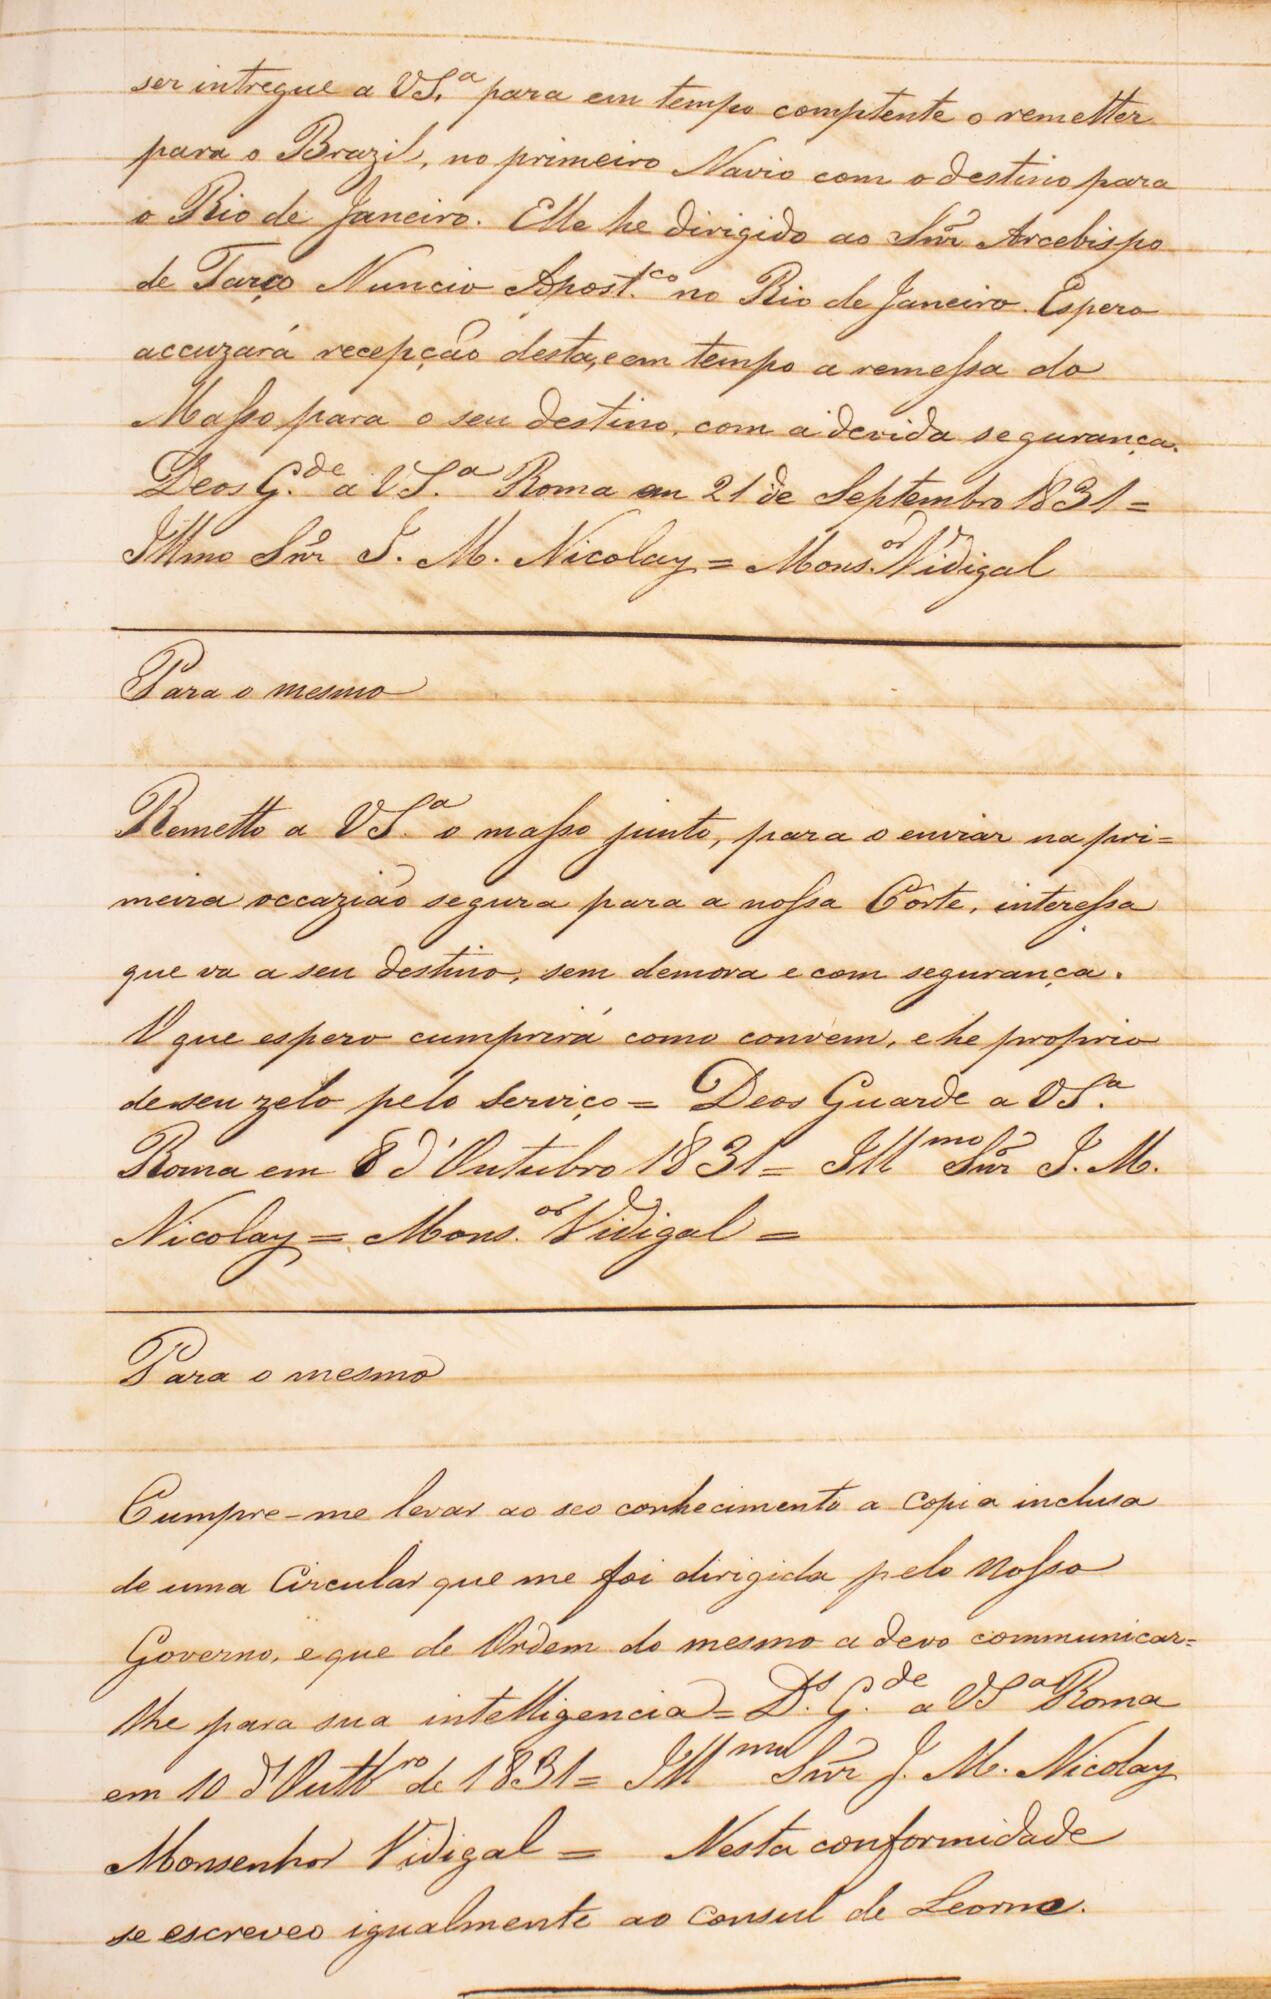 ser intregue a VS.ª para em tempo comptente o remetter
para o Brazil, no primeiro Navio com o destino para
o Rio de Janeiro. Elle he dirigido ao Snr̃ Arcebispo
de Tarço Nuncio Apost.co no Rio de Janeiro. Espero
accuzará recepção desta, e em tempo a remessa do
Masso para o seu destino, com a devida segurança.
Deos G.de a VS.ª Roma em 21 de Septembro 1831 =
Illmo Snr̃ J. M. Nicolay = Mons.or Vidigal
Para o mesmo
Remetto a VS.ª o masso junto, para o enviar na pri=
meira occazião segura para a nossa Côrte, interessa
que va a seu destino, sem demora e com segurança.
O que espero cumprirá como convem, e he proprio
de seu zelo pelo serviço = Deos Guarde a VS.ª
Roma em 8 d'Outubro 1831 = Illmo Snr̃ J. M.
Nicolay = Mons.or Vidigal =
Para o mesmo
Cumpre-me levar ao seo conhecimento a copia inclusa
de uma Circular que me foi dirigida pelo nosso
Governo, e que de Ordem do mesmo a devo communicar=
lhe para sua intelligencia = D.s G.de a VSª Roma
em 10 d'Outbro de 1831 = Illmo Snr̃ J. M. Nicolay
Monsenhor Vidigal = Nesta conformidade
se escreveo igualmente ao Consul de Leorne.